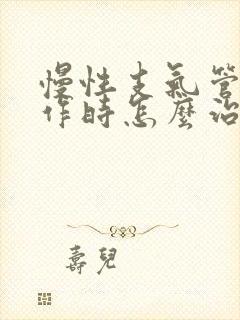 慢性支氣管
作時怎麼治
壽兒